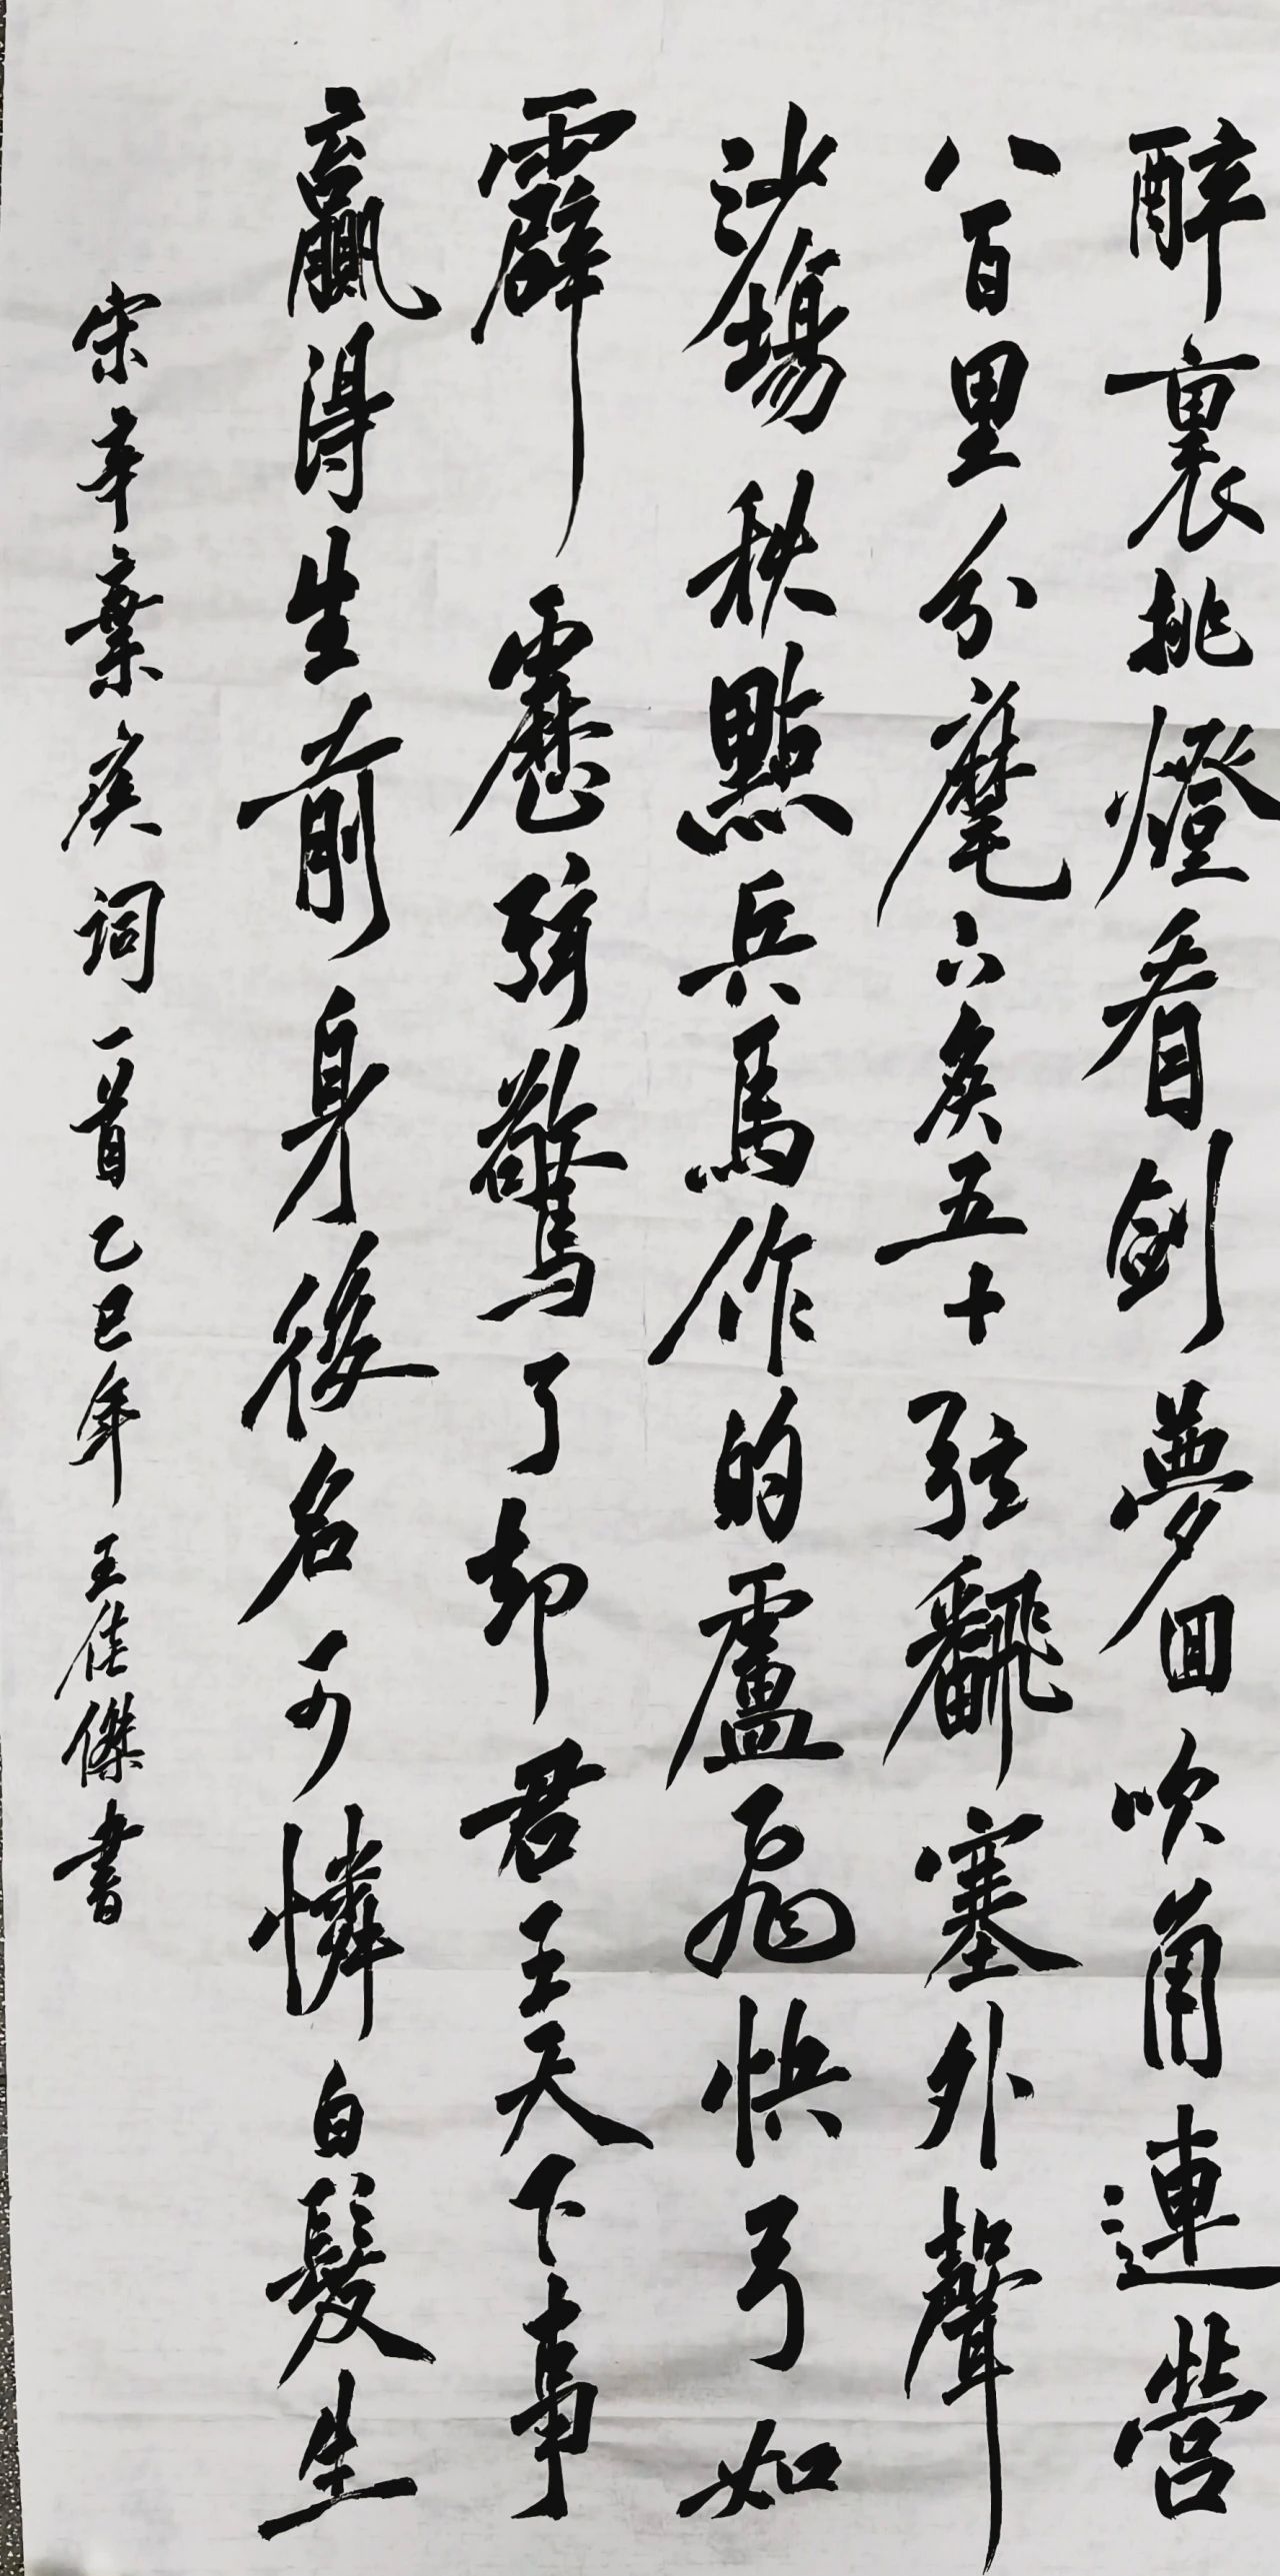 醉裏挑燈看劍夢回吹角連營
八百里分麾下炙五十弦翻塞外聲
沙場秋點兵馬作的盧飛快弓如
霹靂弦驚了却君王天下事
贏得生前身後名可憐白髮生
宋辛棄疾詞一首乙巳年王佳傑書